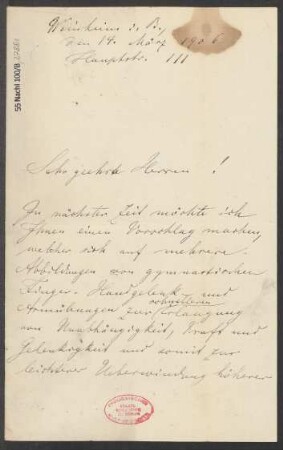 Weinheim i. B.,
den 19. März 1906
Hauptstr. 111
55 Nachl 100/B
Sehr geehrte Herren!
In nächster Zeit möchte ich
Ihnen einen Vorschlag machen,
welcher sich auf mehrere
Abbildungen von gymnastischen
Finger-, Handgelenk- und
Armübungen zur schnelleren Erlangung
von Unabhängigkeit, Kraft und
Gelenkigkeit und somit zur
leichteren Ueberwindung höherer